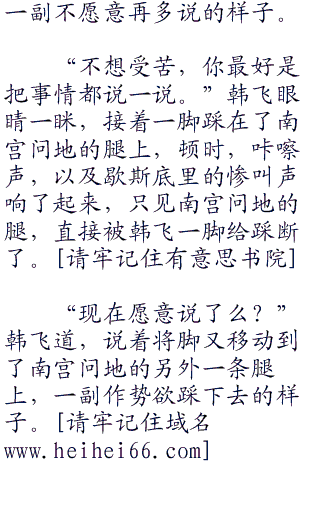 一副不愿意再多说的样子。
“不想受苦，你最好是
把事情都说一说。”韩飞眼
睛一眯，接着一脚踩在了南
宫问地的腿上，顿时，咔嚓
声，以及歇斯底里的惨叫声
响了起来，只见南宫问地的
腿，直接被韩飞一脚给踩断
了。[请牢记住有意思书院]
“现在愿意说了么？”
韩飞道，说着将脚又移动到
了南宫问地的另外一条腿
上，一副作势欲踩下去的样
子。[请牢记住域名
www.heihei66.com]